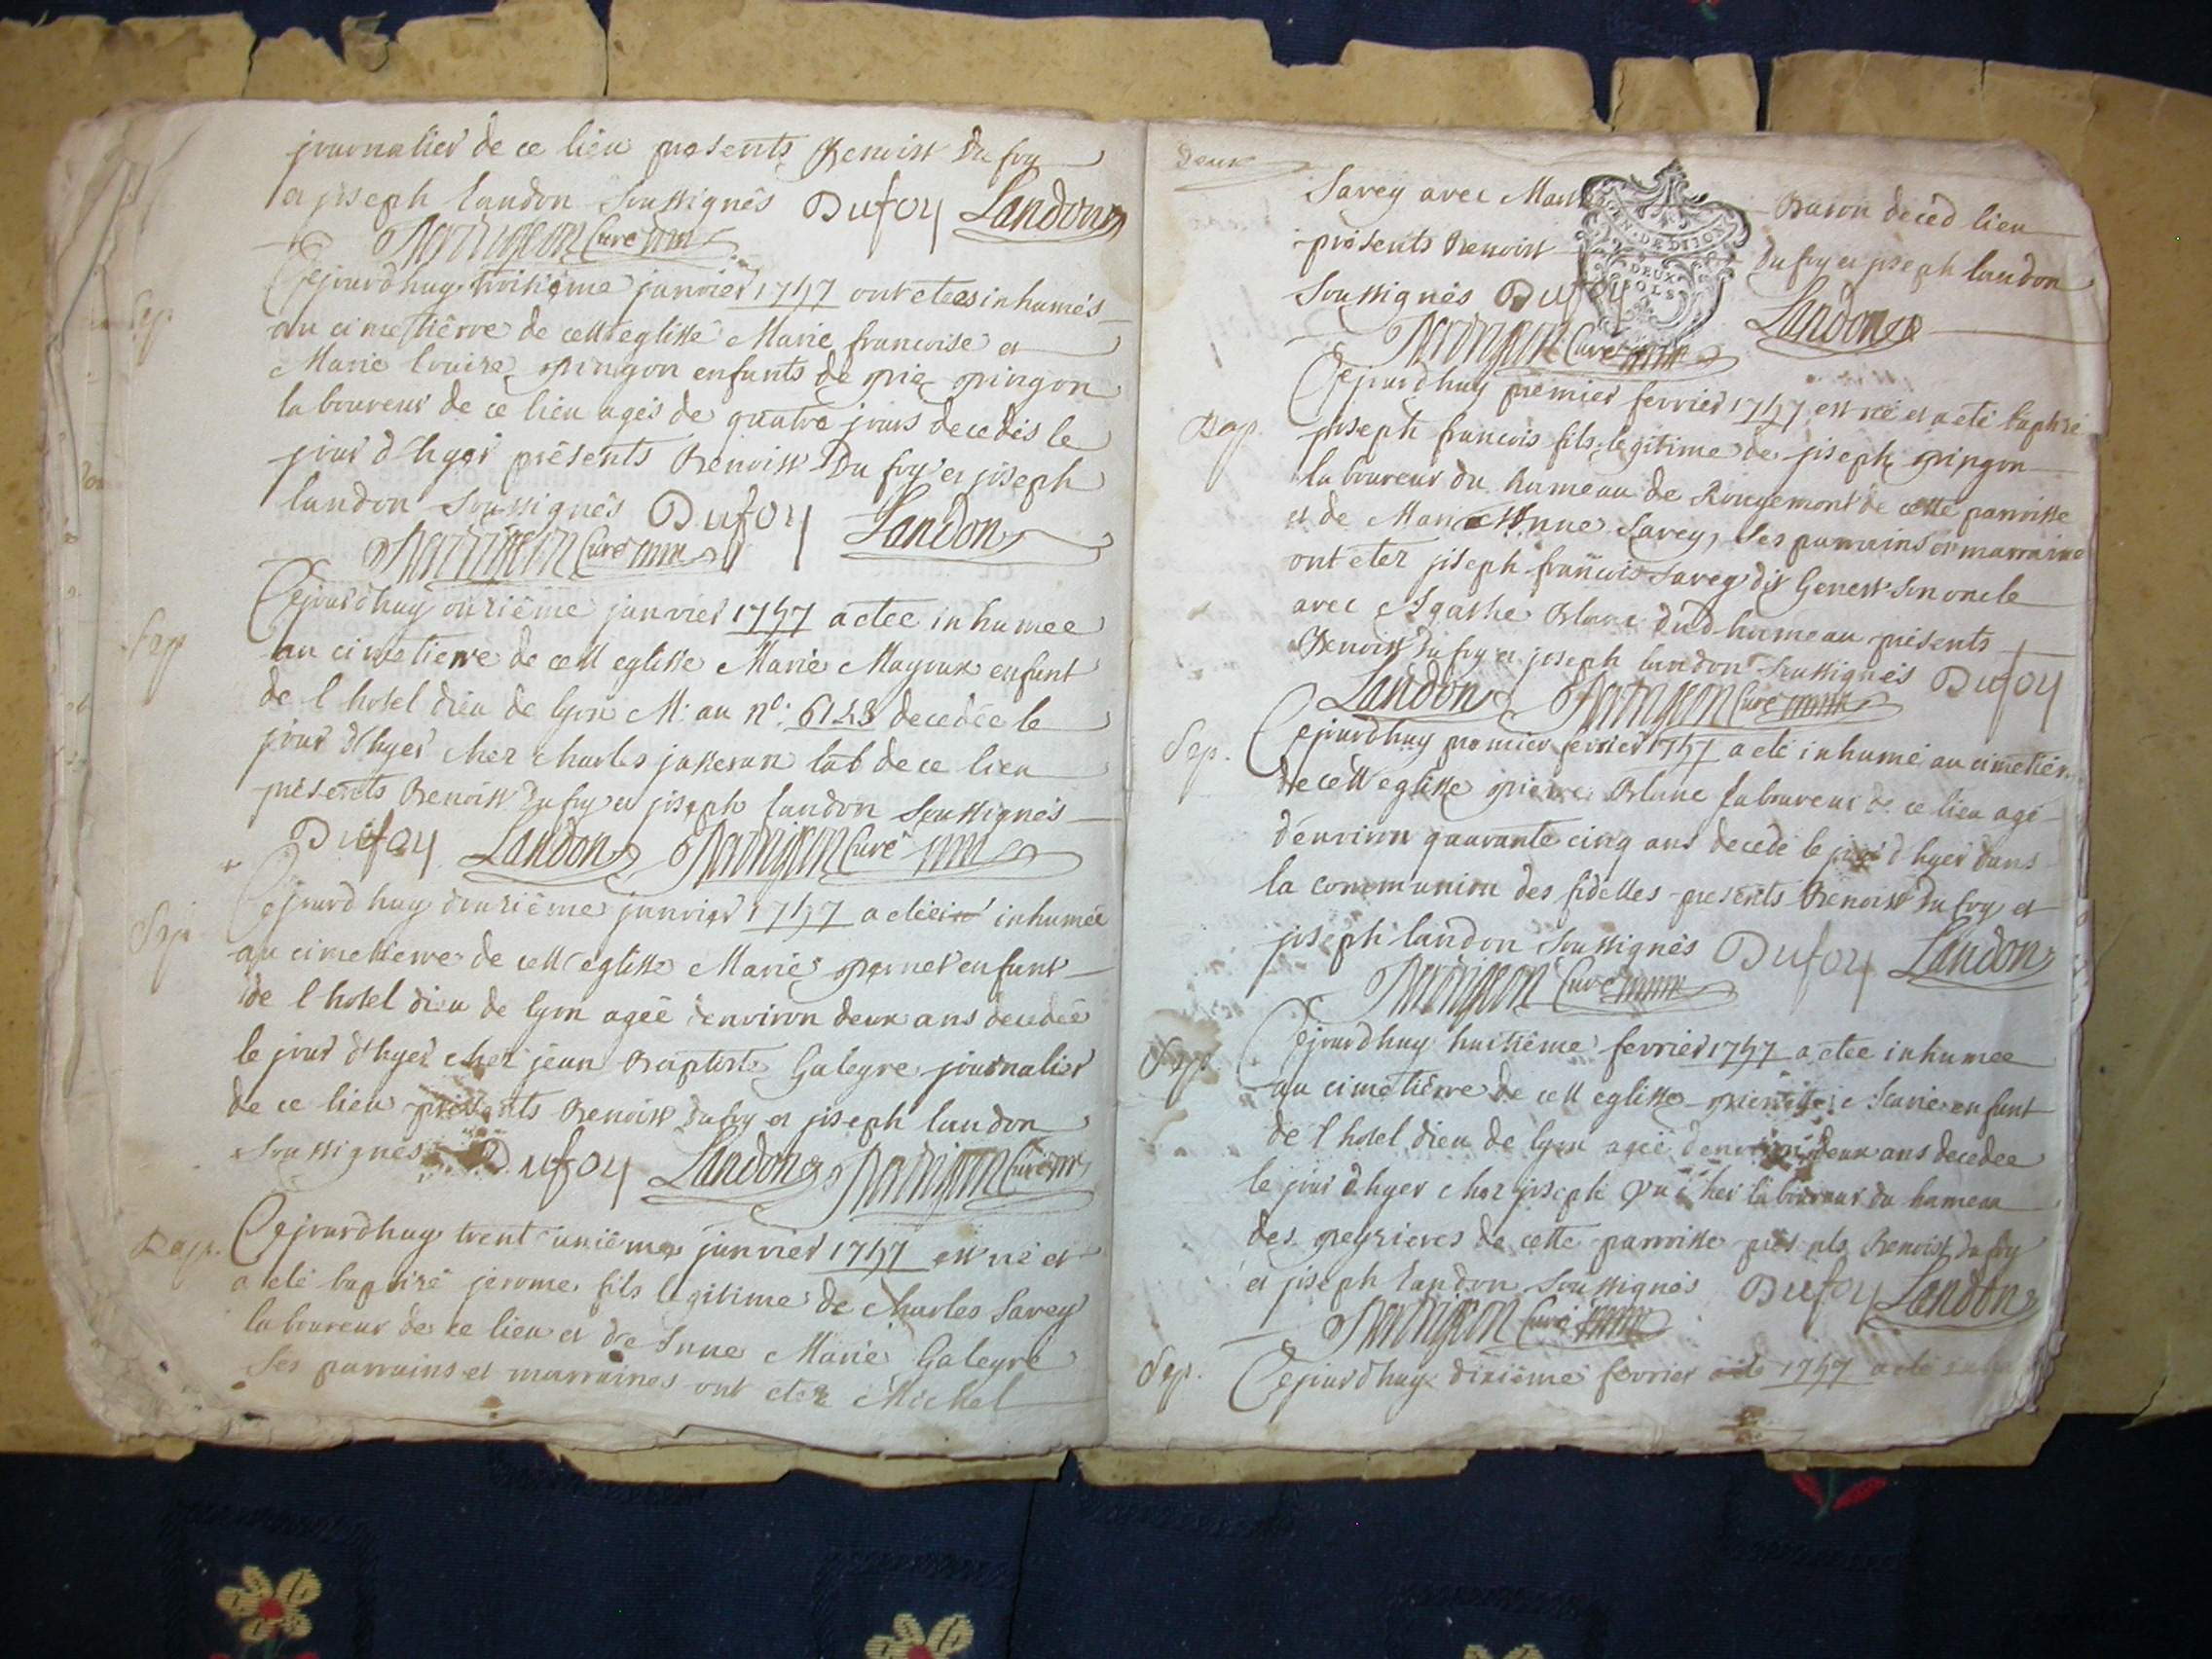 journalier de ce lieu presents Benoist Dufoy
et joseph landon soussignés Dufoy Landon
Curé
Sep
Cejourd'huy troisième janvier 1757 ont etees inhumés
au cimetierre de cett eglisse Marie francoise et
Marie Louise pingon enfants de pre pingon
laboureur de ce lieu agés de quatre jours decedés le
jour d'hyer présents Benoist Dufoy et joseph
landon soussignés Dufoy Landon
Curé
Sep
Cejourd'huy onzième janvier 1757 a etee inhumee
au cimetierre de cett eglisse Marie Mayoux enfant
de l hotel dieu de lyon M: au no: 6143 decedée le
jour d'hyer chez charles jasseran lab de ce lieu
présents Benoist Dufoy et joseph landon soussignés
Dufoy Landon Curé
Sep
Cejourd huy douzième janvier 1757 a etée inhumée
au cimetierre de cett eglisse Marie pernet enfant
de l hotel dieu de lyon ageé denviron deux ans decedeé
le jour d'hyer chez jean Baptiste Galeyre journalier
de ce lieu présents Benoist Dufoy et joseph landon
soussignés Dufoy Landon Curé
Bap.
Cejourdhuy trent unième janvier 1757 est né et
a eté baptizé jerome fils legitime de charles Savey
laboureur de ce lieu et de Anne Marie Galeyre
Ses parrains et marraines ont etez Michel
Deux
Savey avec Buson deced lieu
présents Benoist Dufoy et joseph landon
soussignés Dufoy Landon
GEN. DE DIJON
DEUX
SOLS
Curé
Bap.
Cejourdhuy premier fevrier 1757 est né et a eté baptizé
joseph francois fils legitime de joseph pingon
laboureur du hameau de Rougemont de cette parroisse
et de Marie Anne Savey, ses parrains et marraine
ont etez joseph francois Savey dit Genest son oncle
avec Agathe Blanc dud hameau présents
Benoist Dufoy et joseph landon soussignés Dufoy
Landon Curé
Sep.
Cejourdhuy premier fevrier 1757 a eté inhumé au cimetierre
de cett eglisse pierre Blanc laboureur de ce lieu agé
d'environ quarante cinq ans decedé le jour d'hyer dans
la communion des fidelles presents Benoist Dufoy et
joseph landon soussignés Dufoy Landon
Curé
Sep.
Cejourdhuy huitième fevrier 1757 a etee inhumee
au cimetièrre de cett eglisse enfant
de l hotel dieu de lyon ageé denviron deux ans decedee
le jour d'hyer chez joseph laboureur du hameau
des peyzieres de cette parroisse Benoist Dufoy
et joseph landon soussignés Dufoy Landon
Curé
Sep.
Cejourdhuy dixième fevrier 1757 a eté